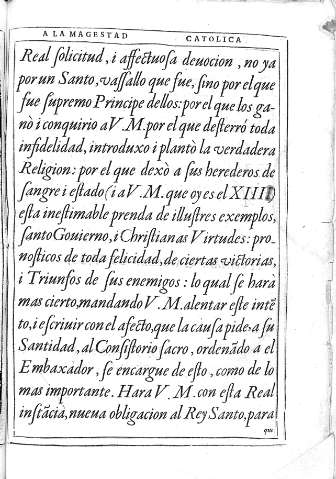 A LA MAGESTAD CATOLICA
Real ſolicitud, i affectuoſa deuocion, no ya
por un Santo, vaſſallo que fue, ſino por el que
fue ſupremo Principe dellos: por el que los ga-
nò i conquirio a V. M. por el que deſterró toda
infidelidad, introduxo i plantò la verdadera
Religion: por el que dexò a ſus herederos de
ſangre i eſtado (i a V. M. que oy es el XIIII)
eſta ineſtimable prenda de illuſtres exemplos,
ſanto Gouierno, i Chriſtianas Virtudes: pro-
noſticos de toda felicidad, de ciertas victorias,
i Triunfos de ſus enemigos: lo qual ſe harà
mas cierto, mandando V. M. alentar eſte intẽ
to, i eſcriuir con el afecto, que la cauſa pide a ſu
Santidad, al Conſiſtorio ſacro, ordenãdo a el
Embaxador, ſe encargue de eſto, como de lo
mas importante. Hara V. M. con eſta Real
inſtãcia, nueua obligacion al Rey Santo, para
qui